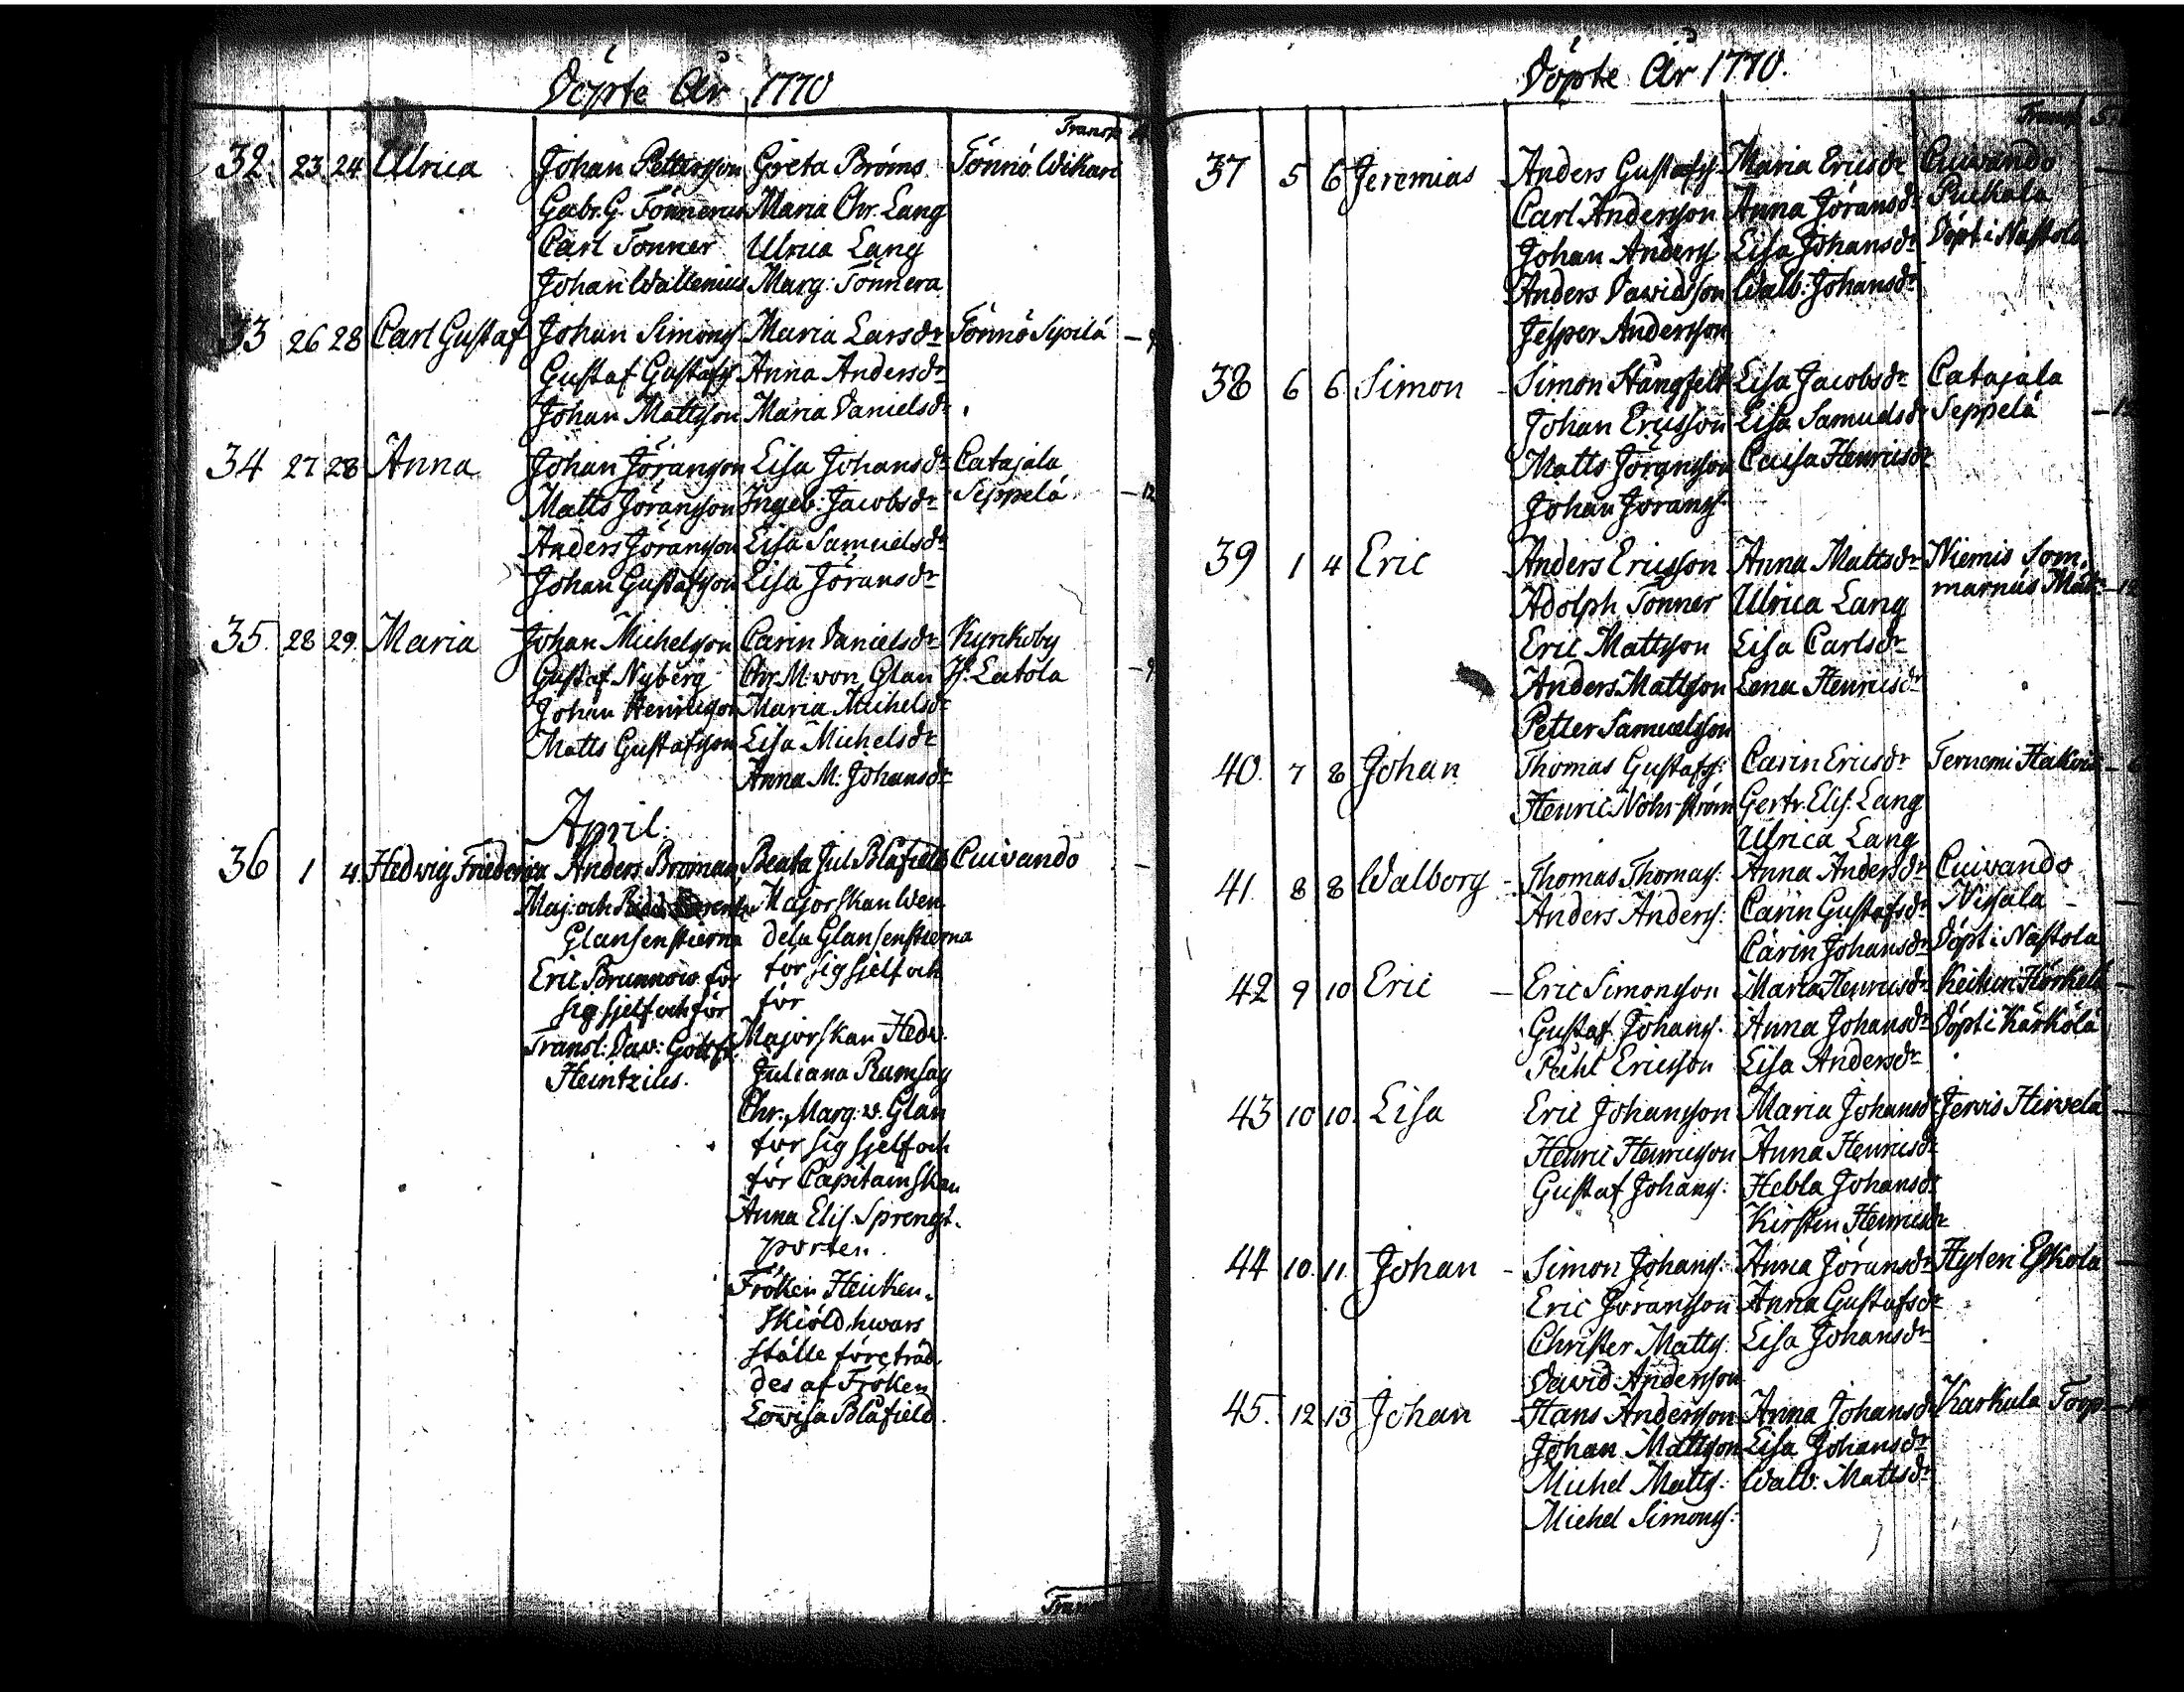 Döpte År 1770
Transp
32. 23 24 Ulrica Johan Pettersson Greta Broms Tönnö Wikari
Gabr. G. Tönnerus Maria Chr. Lang
Carl Tönner Ulrica Lang
Johan Wallenius Marg: Tönnera
33 26 28 Carl Gustaf Johan Simonss Maria Larsdr Tönnö Sipilä
Gustaf Gustafss Anna Andersdr
Johan Mattsson Maria Danielsdr
34 27 28 Anna Johan Jöransson Lisa Johansdr Catajala
Matts Jöransson Ingeb: Jacobsdr Seppelä - 12
Anders Jöransson Lisa Samuelsdr
Johan Gustafsson Lisa Jöransdr
35. 28 29. Maria Johan Michelsson Carin Danielsdr Kyrkoby
Gustaf Nyberg Chr. M. von Glan Latola
Johan Henricsson Maria Michelsdr
Matts Gustafsson Lisa Michelsdr
Anna M. Johansdr
April.
36 1 4 Hedwig Friederica Anders Broman Beata Jul Blåfield Cuivando
Maj: och Majorskan Wen
Glansenstierna dela Glansenstierna
Eric Brunnow för för sig sjelf och
sig sjelf och för för
Transl: Dav: Gottfr. Majorskan Hedv.
Heintzius. Juliana Ramsay
Chr. Marg: v. Glan
för sig sjelf och
för Capitainskan
Anna Elis. Sprengt-
porten.
Fröken Heinken-
skiöld, hwars
ställe företräd-
des af Fröken
Lowisa Blåfield.
Döpte År 1770.
37 5 6 Jeremias Anders Gustafss Maria Ericsdr Cuivando
Carl Andersson Anna Jöransdr Puckala
Johan Anderss Lisa Johansdr Döpt i Nastola
Anders Davidsson Walb: Johansdr
Jesper Andersson
38 6 6 Simon Simon Stångfelt Lisa Jacobsdr Catajala
Johan Ericsson Lisa Samuelsdr Seppelä
Matts Jöransson Caisa Henricsdr
Johan Jöranss
39 1 4 Eric Anders Ericsson Anna Mattsdr Niemis Som-
Adolph Tönner Ulrica Lang marnäs
Eric Mattsson Lisa Carlsdr
Anders Mattsson Lena Henricsdr
Petter Samuelsson
40. 7 8 Johan Thomas Gustafss: Carin Ericsdr
Henric Nohrström Gertr. Elis. Lang
Ulrica Lang
41. 8 8 Walborg Thomas Thomass: Anna Andersdr Cuivando
Anders Anderss: Carin Gustafsdr
Carin Johansdr Döpt i Nastola
42 9 10 Eric Eric Simonsson Maria Henricsdr
Gustaf Johanss. Anna Johansdr Döpt i Kärkölä
Påhl Ericsson Lisa Andersdr
43 10 10. Lisa Eric Johansson Maria Johansdr Jervis Hirvelä
Henric Henricsson Anna Henricsdr
Gustaf Johanss: Hebla Johansdr
Kirstin Henricsdr
44 10. 11. Johan Simon Johanss: Anna Jöransdr Hyteri Eskola
Eric Jöransson Anna Gustafsdr
Christer Mattss. Lisa Johansdr
David Andersson
45. 12 13 Johan Hans Andersson Anna Johansdr Karkula Torp
Johan Mattsson Lisa Johansdr
Michel Mattss: Walb: Mattsdr
Michel Simonss: